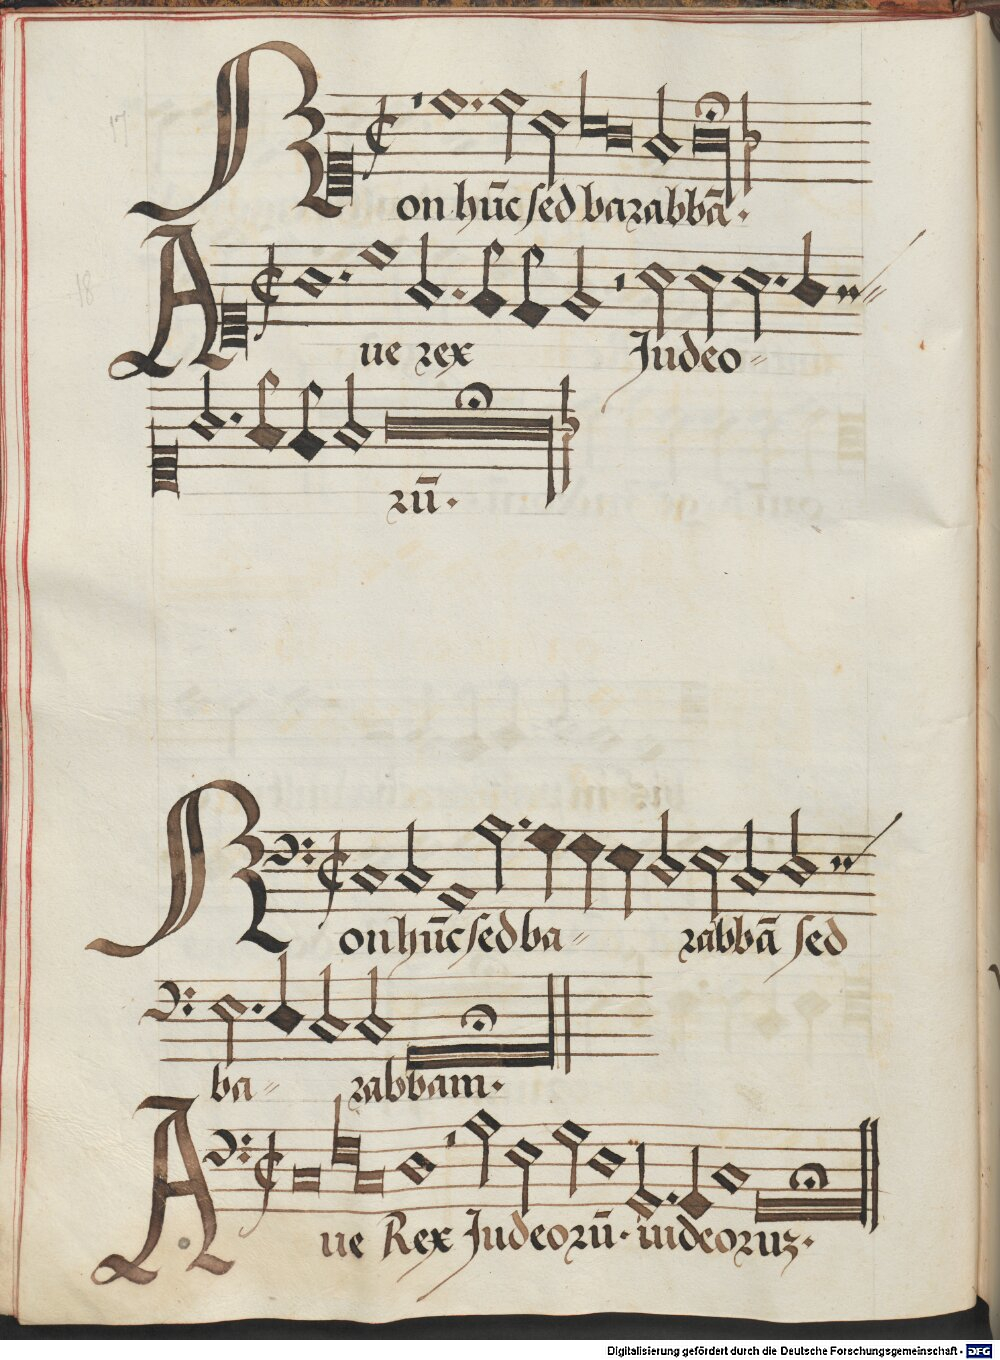 17
Non hūc sed barabbā.
18
Aue rex Judeo=
rū.
Non hūc sed ba= rabbā sed
ba= rabbam.
Aue Rex Judeorū. iudeoruz.
Digitalisierung gefördert durch die Deutsche Forschungsgemeinschaft - DFG